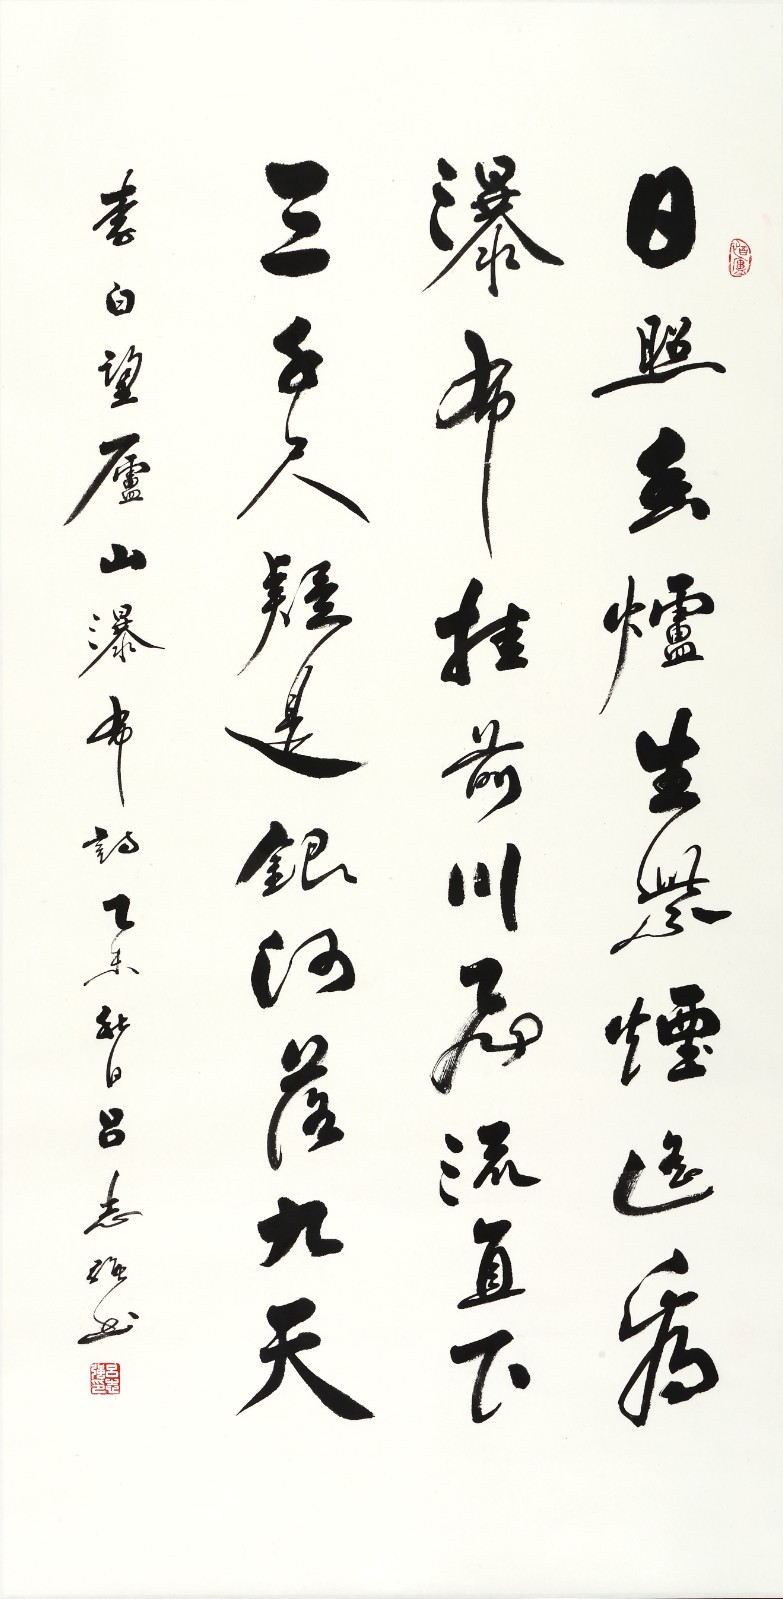 日照香爐生紫煙遙看
瀑布挂前川飛流直下
三千尺疑是銀河落九天
李白望廬山瀑布詩乙未秋日呂志強書